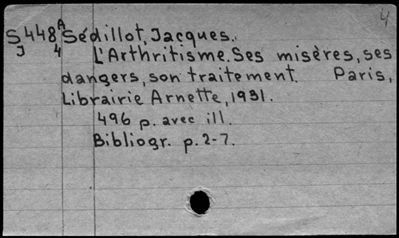 4
S448A Sédillot, Jacques.
J 4 L'Arthritisme. Ses misères, ses
dangers, son traitement. Paris,
Librairie Arnette, 1931.
496 p. avec ill.
Bibliogr. p. 2-7.